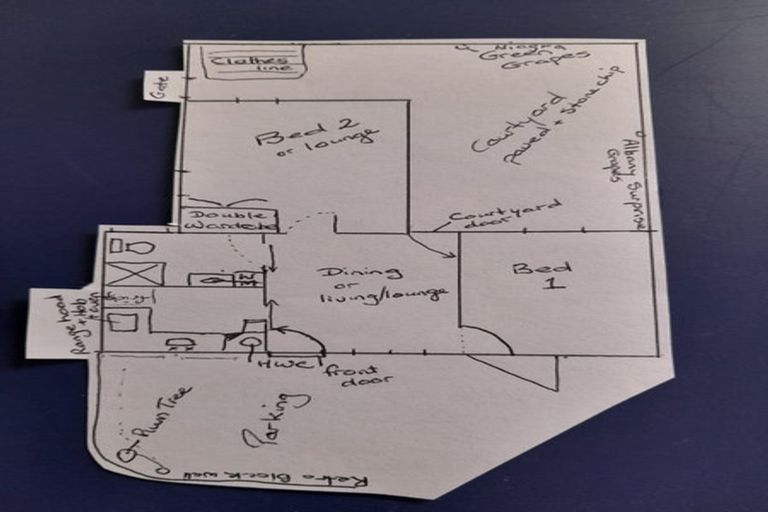 Clothes
line
Niagra
Green
Grapes
Gate
Courtyard
paved + stonechip
Bed 2
or lounge
Albany Surprise
Grapes
Double
Wardrobe
Courtyard
door
Dining
or
living/lounge
Bed
1
Rangehood
+ Hob
+ oven
HWC
front
door
Plum Tree
Parking
Retro Block wall